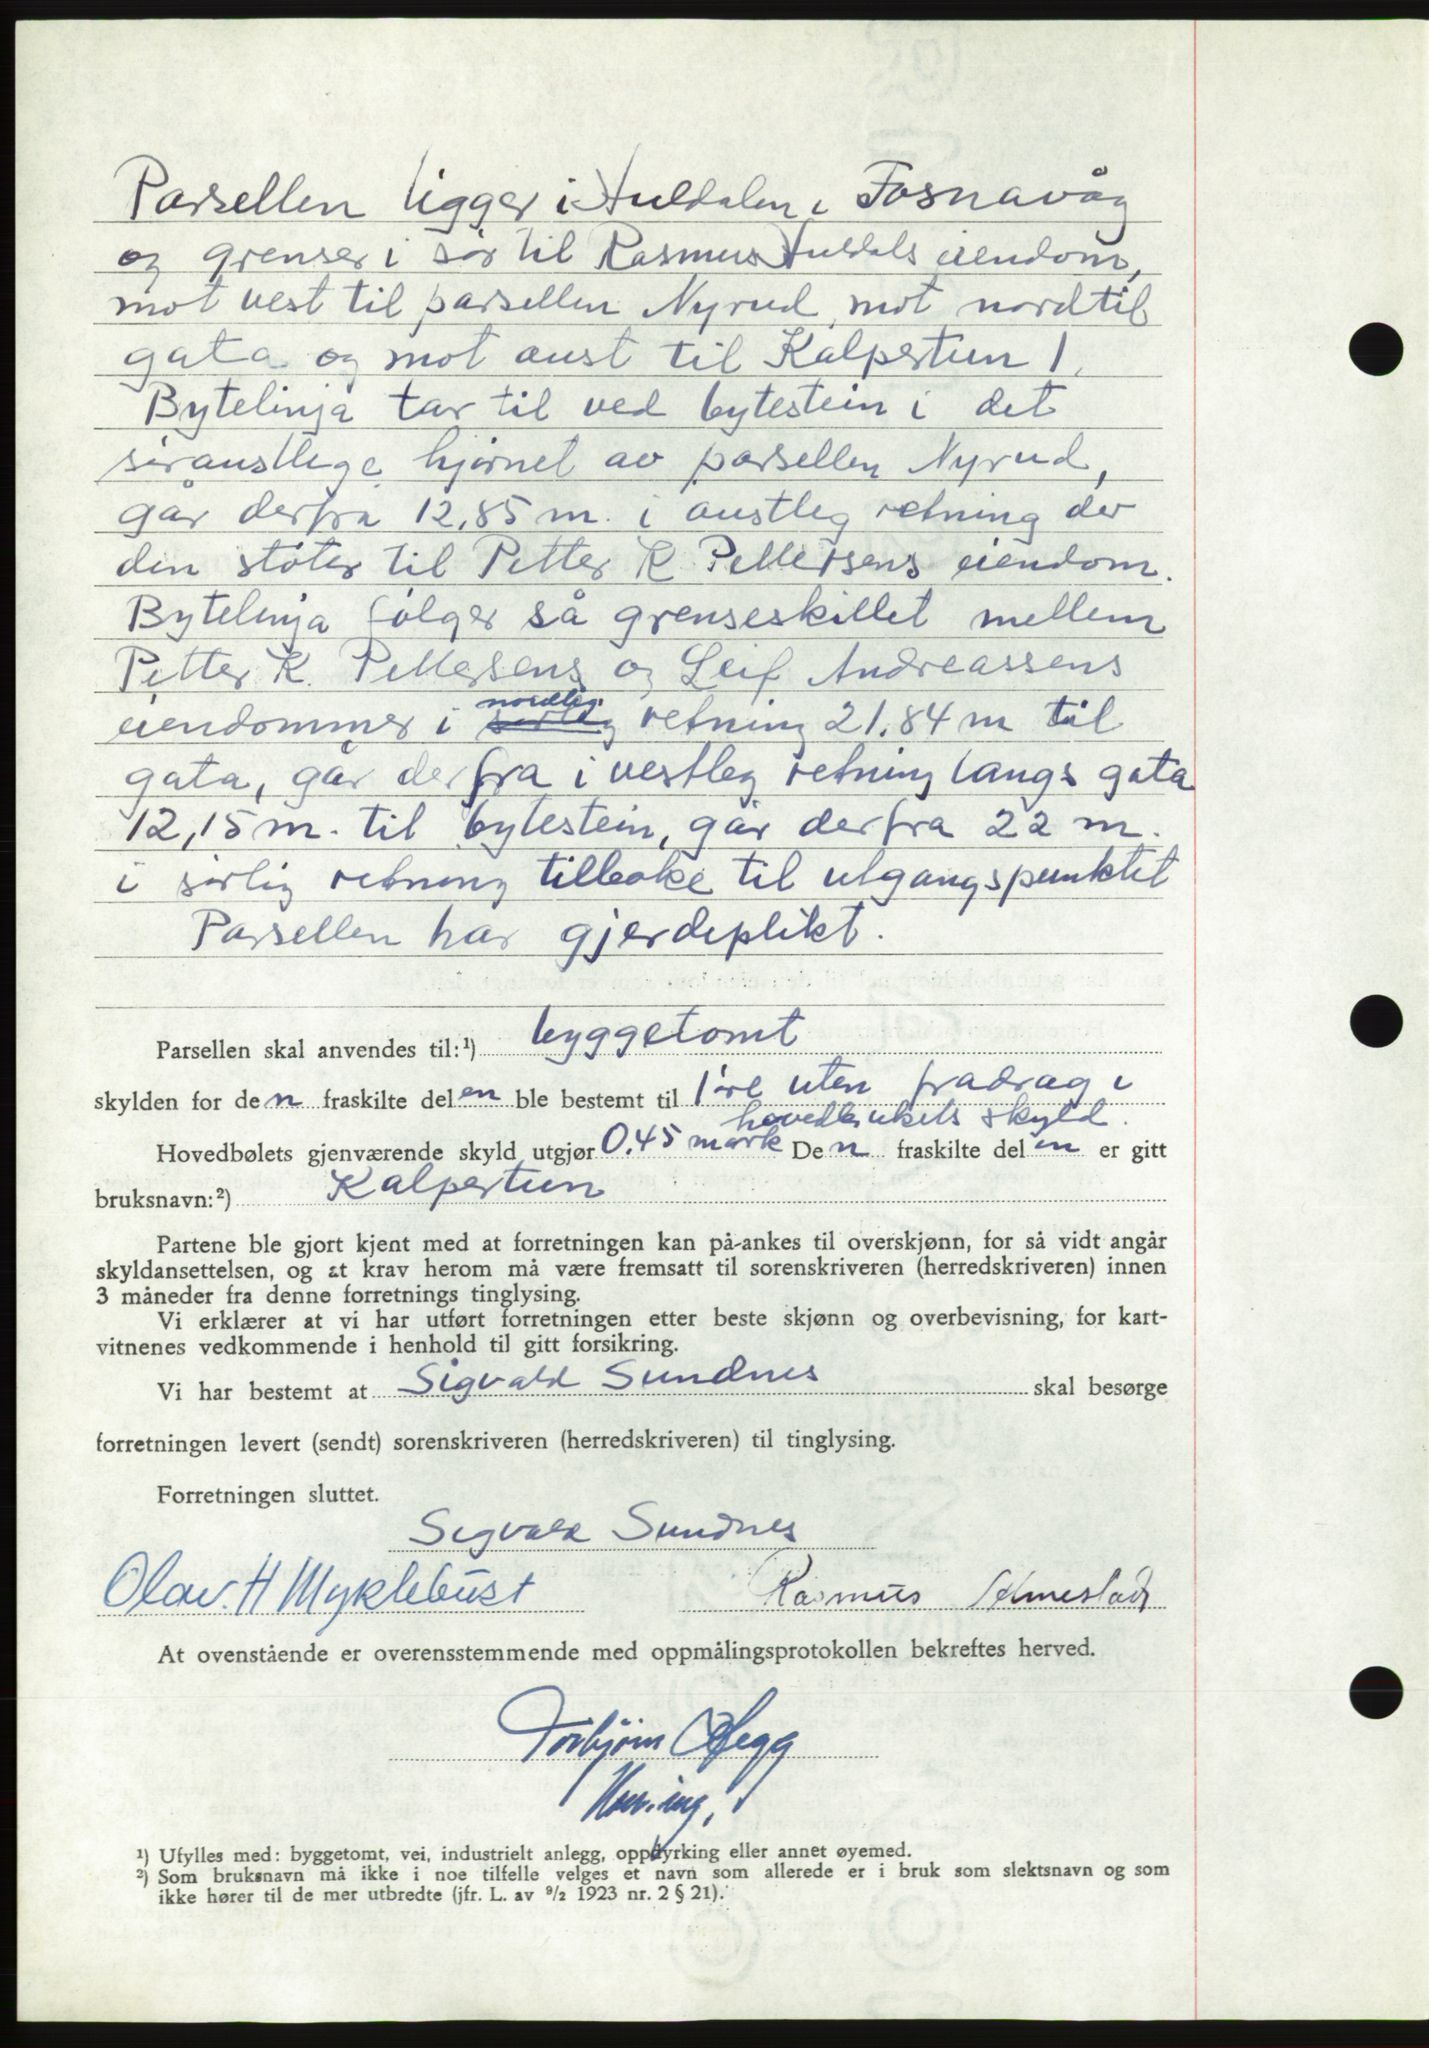 Parsellen ligger i Huldalen i Fosnavåg
og grenser i sør til Rasmus Huldals eiendom,
mot vest til parsellen Nyrud, mot nord til
gata og mot aust til Kalpertun 1.
Bytelinja tar til ved bytestein i det
søraustlege hjørnet av parsellen Nyrud,
går derfra 12,85 m. i austleg retning der
den støter til Petter K. Pettersens eiendom.
Bytelinja følger så grenseskillet mellem
Petter K. Pettersens og Leif Andreassens
eiendommer i nordleg retning 21.84 m til
gata, går derfra i vestleg retning langs gata
12,15 m. til bytestein, går derfra 22 m.
i sørlig retning tilbake til utgangspunktet
Parsellen har gjerdeplikt.
Parsellen skal anvendes til:¹) byggetomt
skylden for den fraskilte delen ble bestemt til 1 øre uten fradrag i
hovedbrukets skyld.
Hovedbølets gjenværende skyld utgjør 0.45 mark Den fraskilte delen er gitt
bruksnavn:²) Kalpertun
Partene ble gjort kjent med at forretningen kan på-ankes til overskjønn, for så vidt angår
skyldansettelsen, og at krav herom må være fremsatt til sorenskriveren (herredskriveren) innen
3 måneder fra denne forretnings tinglysing.
Vi erklærer at vi har utført forretningen etter beste skjønn og overbevisning, for kart-
vitnenes vedkommende i henhold til gitt forsikring.
Vi har bestemt at Sigvald Sundnes skal besørge
forretningen levert (sendt) sorenskriveren (herredskriveren) til tinglysing.
Forretningen sluttet.
Sigvald Sundnes
Olav. H Myklebust Rasmus
At ovenstående er overensstemmende med oppmålingsprotokollen bekreftes herved.
Torbjørn
¹) Ufylles med: byggetomt, vei, industrielt anlegg, oppdyrking eller annet øyemed.
²) Som bruksnavn må ikke i noe tilfelle velges et navn som allerede er i bruk som slektsnavn og som
ikke hører til de mer utbredte (jfr. L. av ⁹/₂ 1923 nr. 2 § 21).